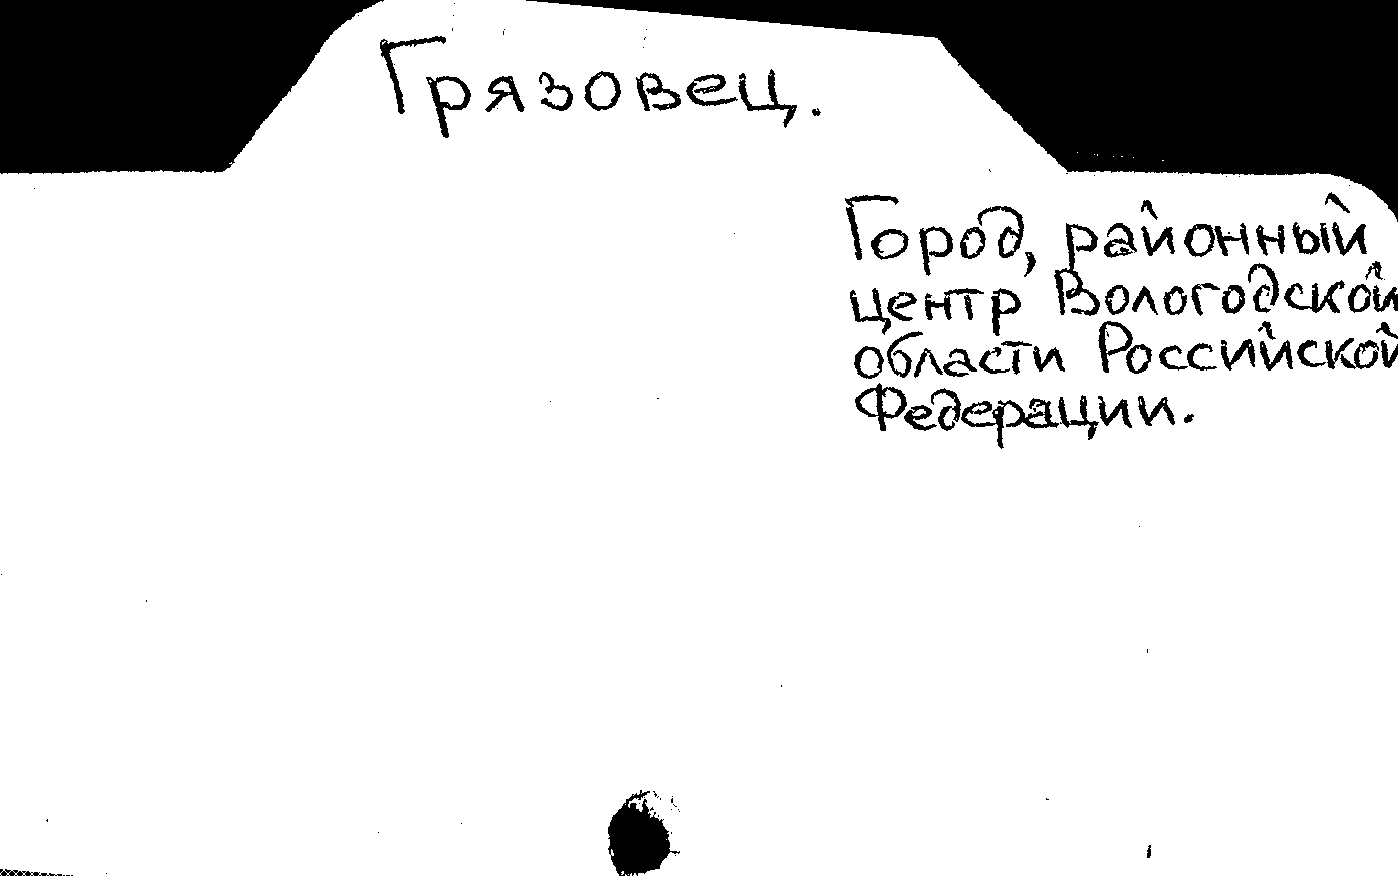 Грязовец.
Город, районный
центр Вологодской
области Российской
Федерации.